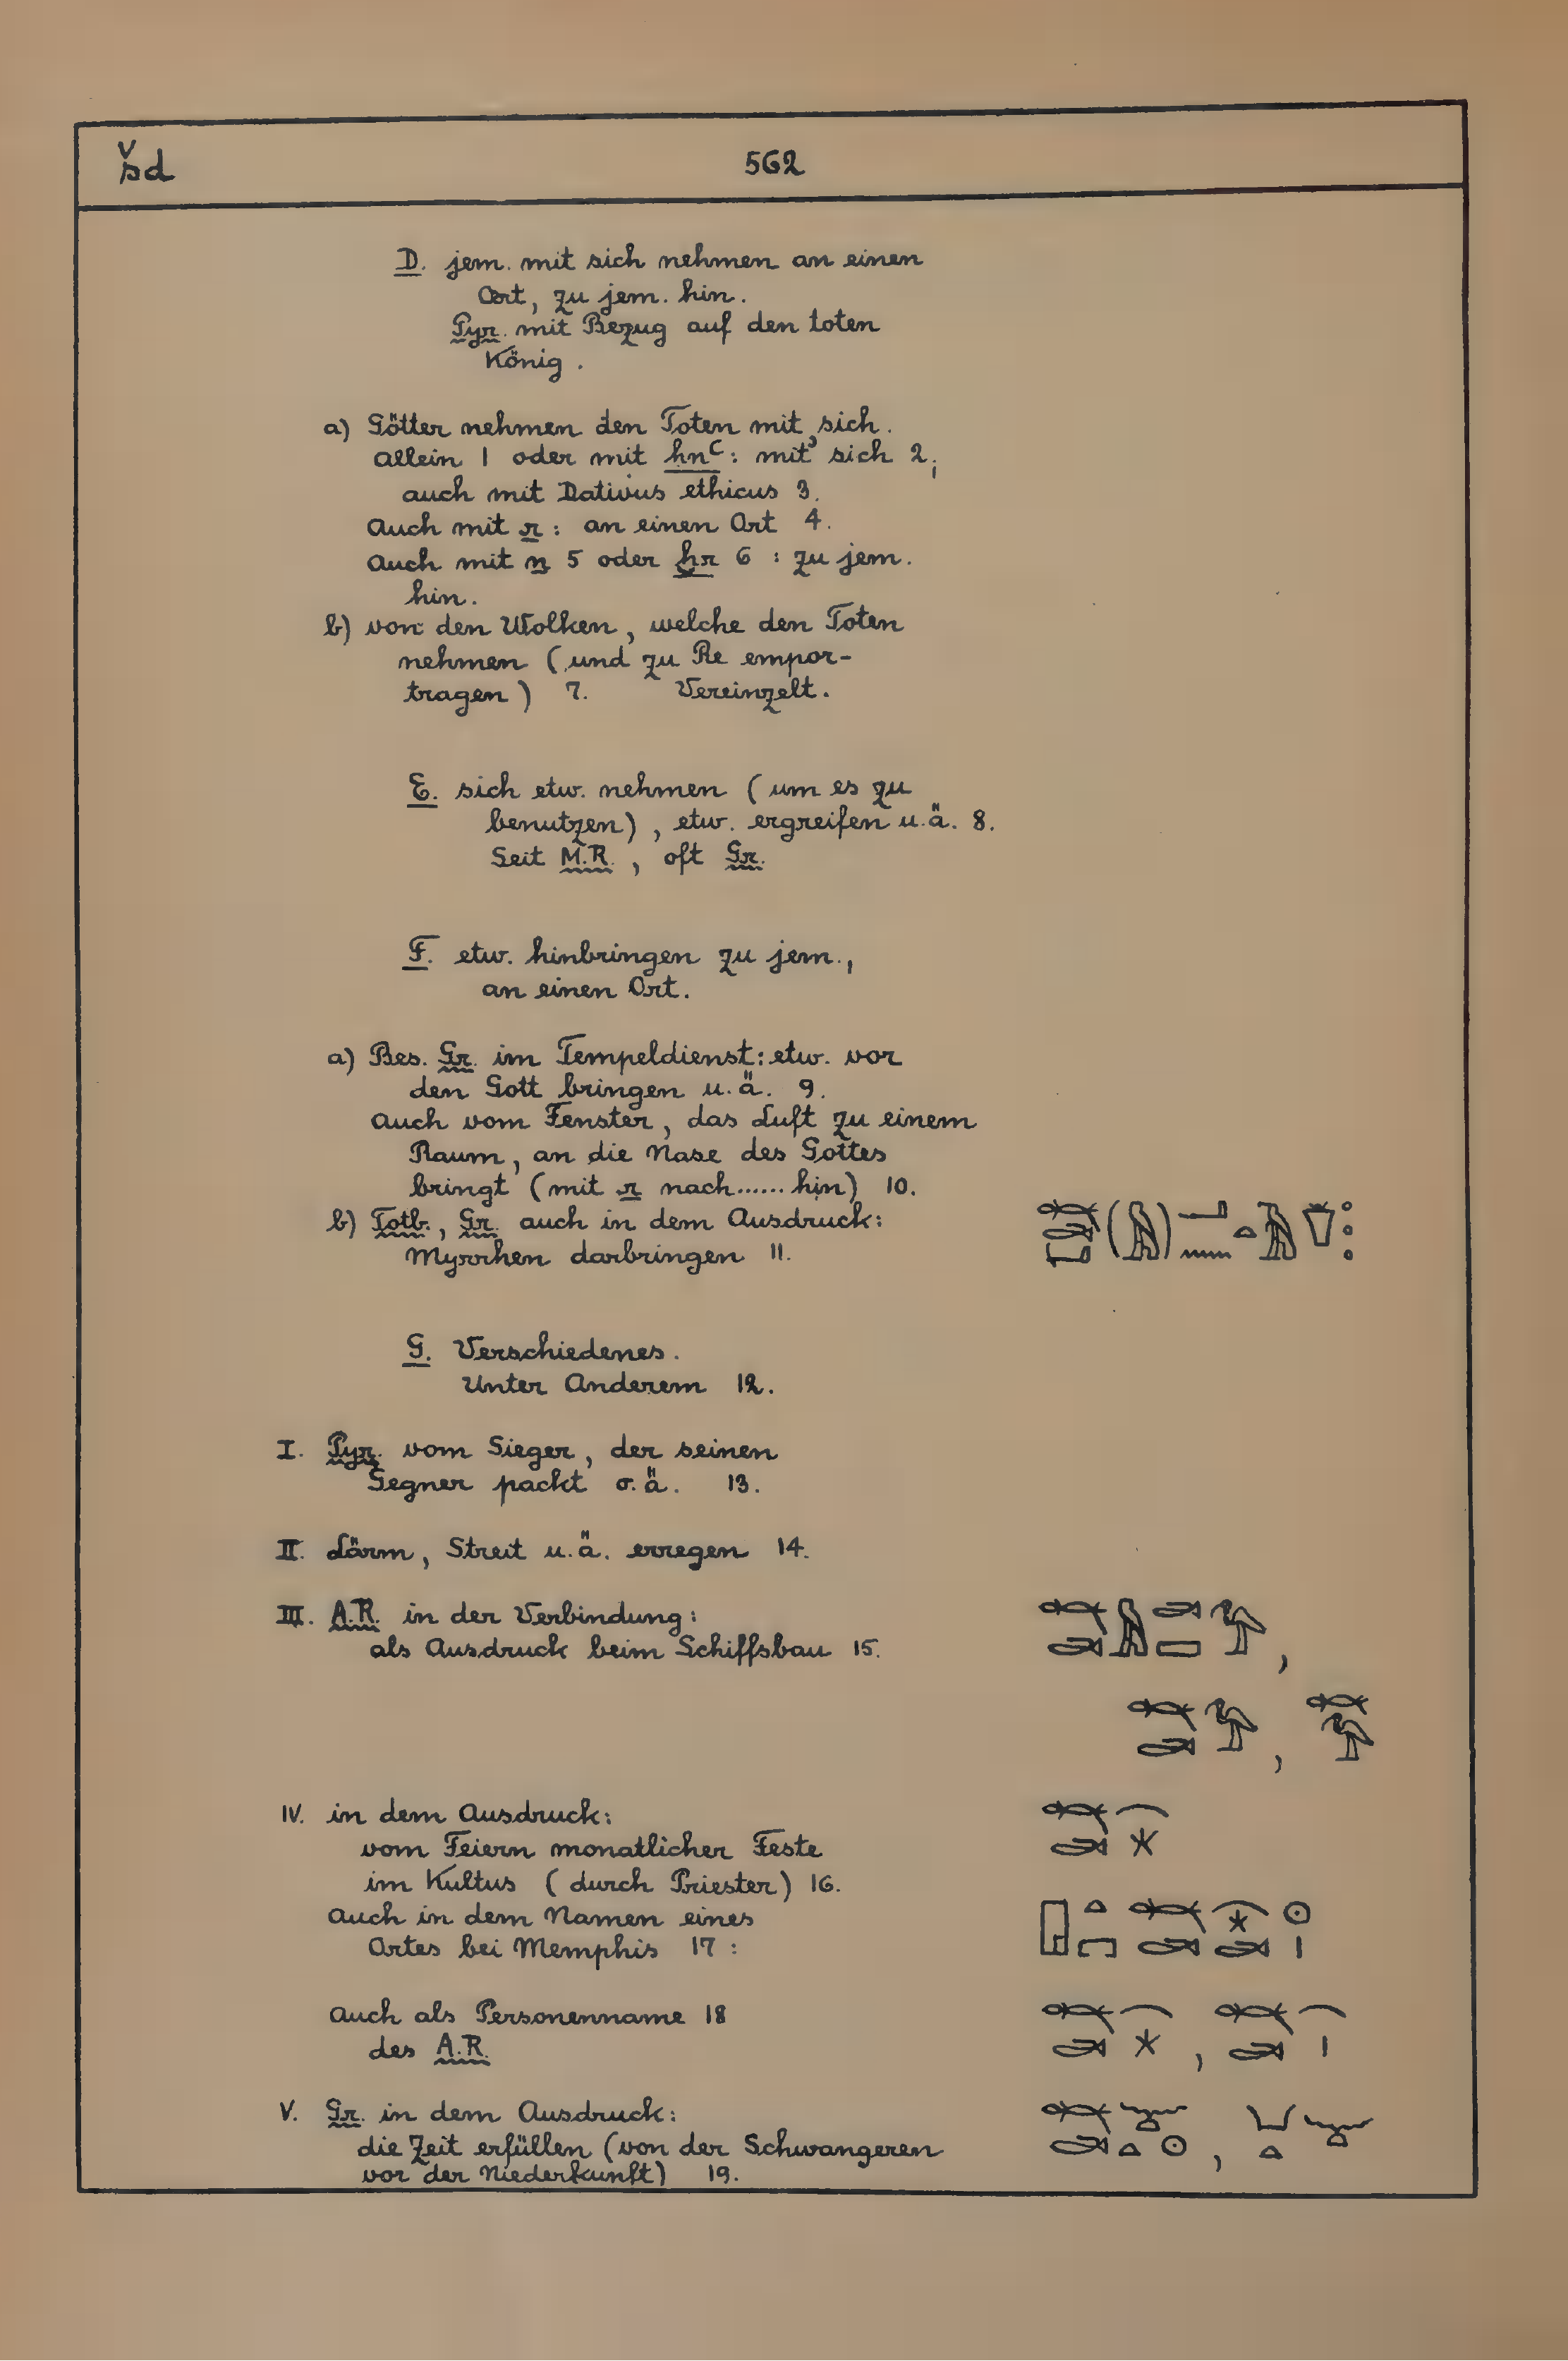 šd 562
D. jem. mit sich nehmen an einen
Ort, zu jem. hin.
Pyr. mit Bezug auf den toten
König.
a) Götter nehmen den Toten mit sich.
allein 1 oder mit ḥnꜥ: mit sich 2;
auch mit Dativus ethicus 3.
Auch mit r: an einen Ort 4.
Auch mit n 5 oder ḫr 6 : zu jem.
hin.
b) von den Wolken, welche den Toten
nehmen (und zu Re empor-
tragen) 7. Vereinzelt.
E. sich etw. nehmen (um es zu
benutzen), etw. ergreifen u.ä. 8.
Seit M.R., oft Gr.
F. etw. hinbringen zu jem.,
an einen Ort.
a) Bes. Gr. im Tempeldienst: etw. vor
den Gott bringen u.ä. 9.
Auch vom Fenster, das Luft zu einem
Raum, an die Nase des Gottes
bringt (mit r nach...... hin) 10.
b) Totb., Gr. auch in dem Ausdruck:
Myrrhen darbringen 11.
G. Verschiedenes.
Unter Anderem 12.
I. Pyr. vom Sieger, der seinen
Gegner packt o.ä. 13.
II. Lärm, Streit u.ä. erregen 14.
III. A.R. in der Verbindung:
als Ausdruck beim Schiffsbau 15.
IV. in dem Ausdruck:
vom Feiern monatlicher Feste
im Kultus (durch Priester) 16.
Auch in dem Namen eines
Ortes bei Memphis 17 :
Auch als Personenname 18
des A.R.
V. Gr. in dem Ausdruck:
die Zeit erfüllen (von der Schwangeren
vor der Niederkunft) 19.